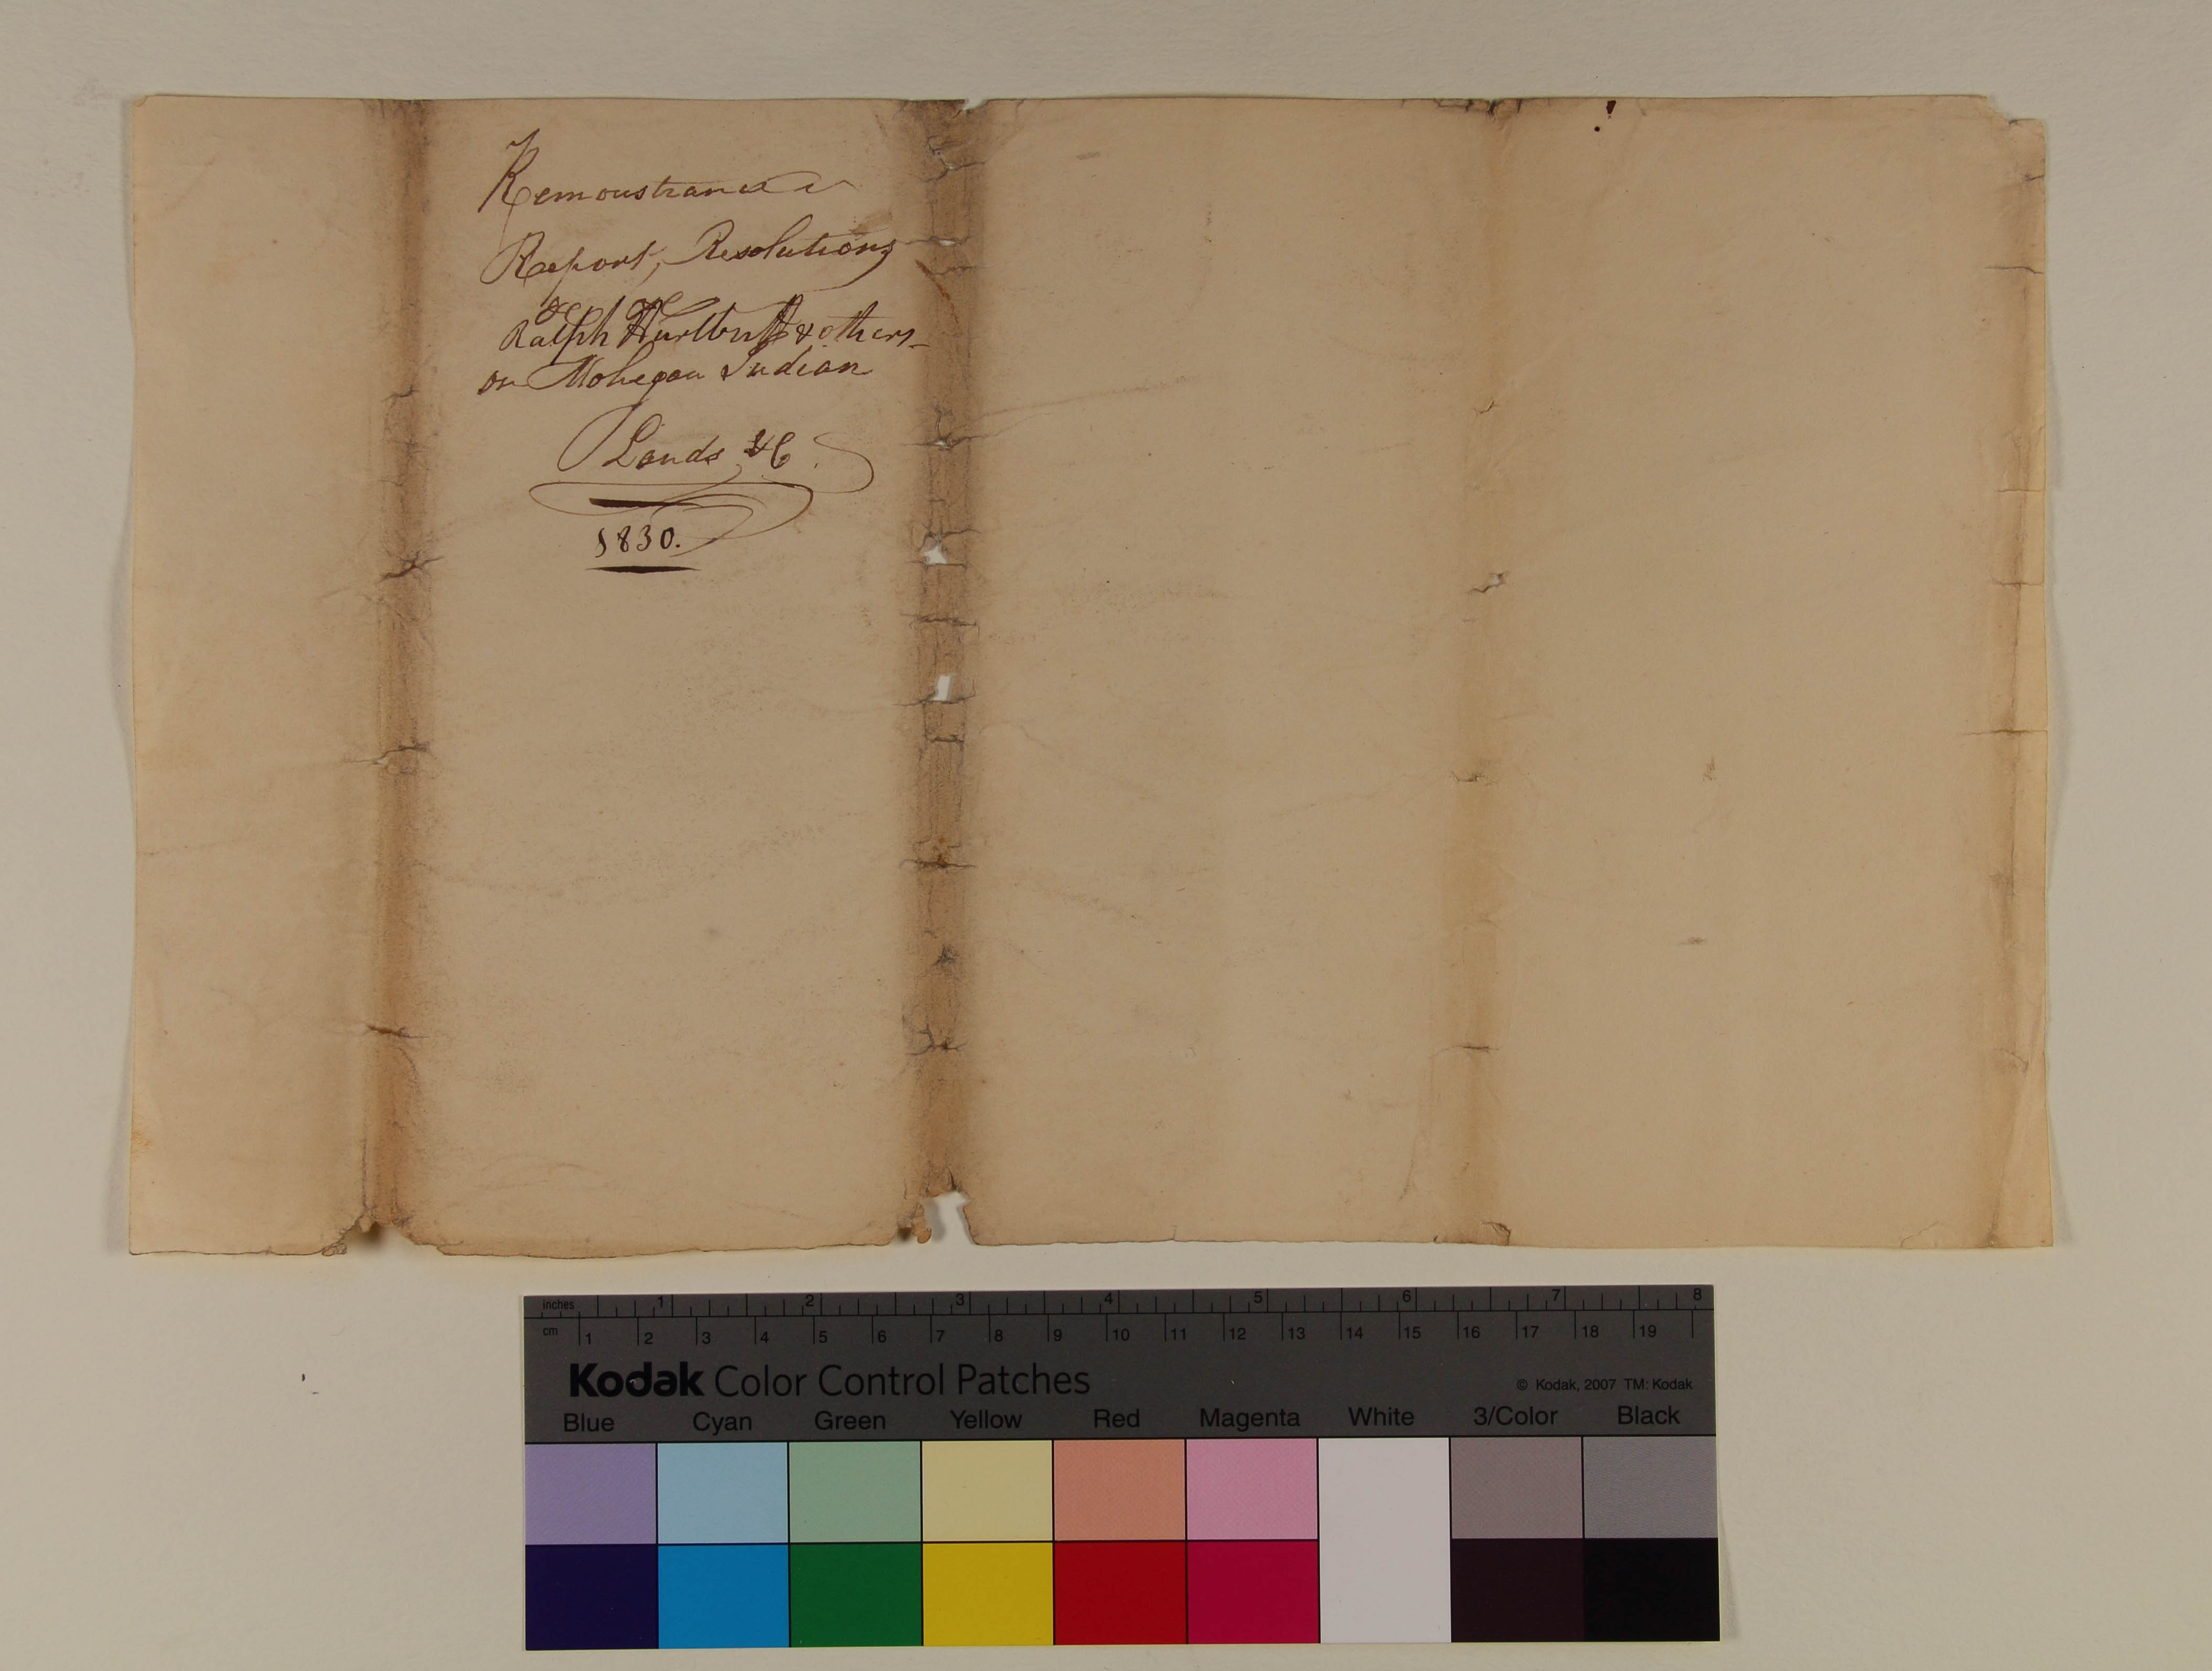 Remonstrance
Report, Resolutions
Ralph Hurlbutt & others
on Mohegan Indian
Lands &C.
1830.
inches 1 2 3 4 5 6 7 8
cm 1 2 3 4 5 6 7 8 9 10 11 12 13 14 15 16 17 18 19
Kodak Color Control Patches
© Kodak, 2007 TM: Kodak
Blue Cyan Green Yellow Red Magenta White 3/Color Black